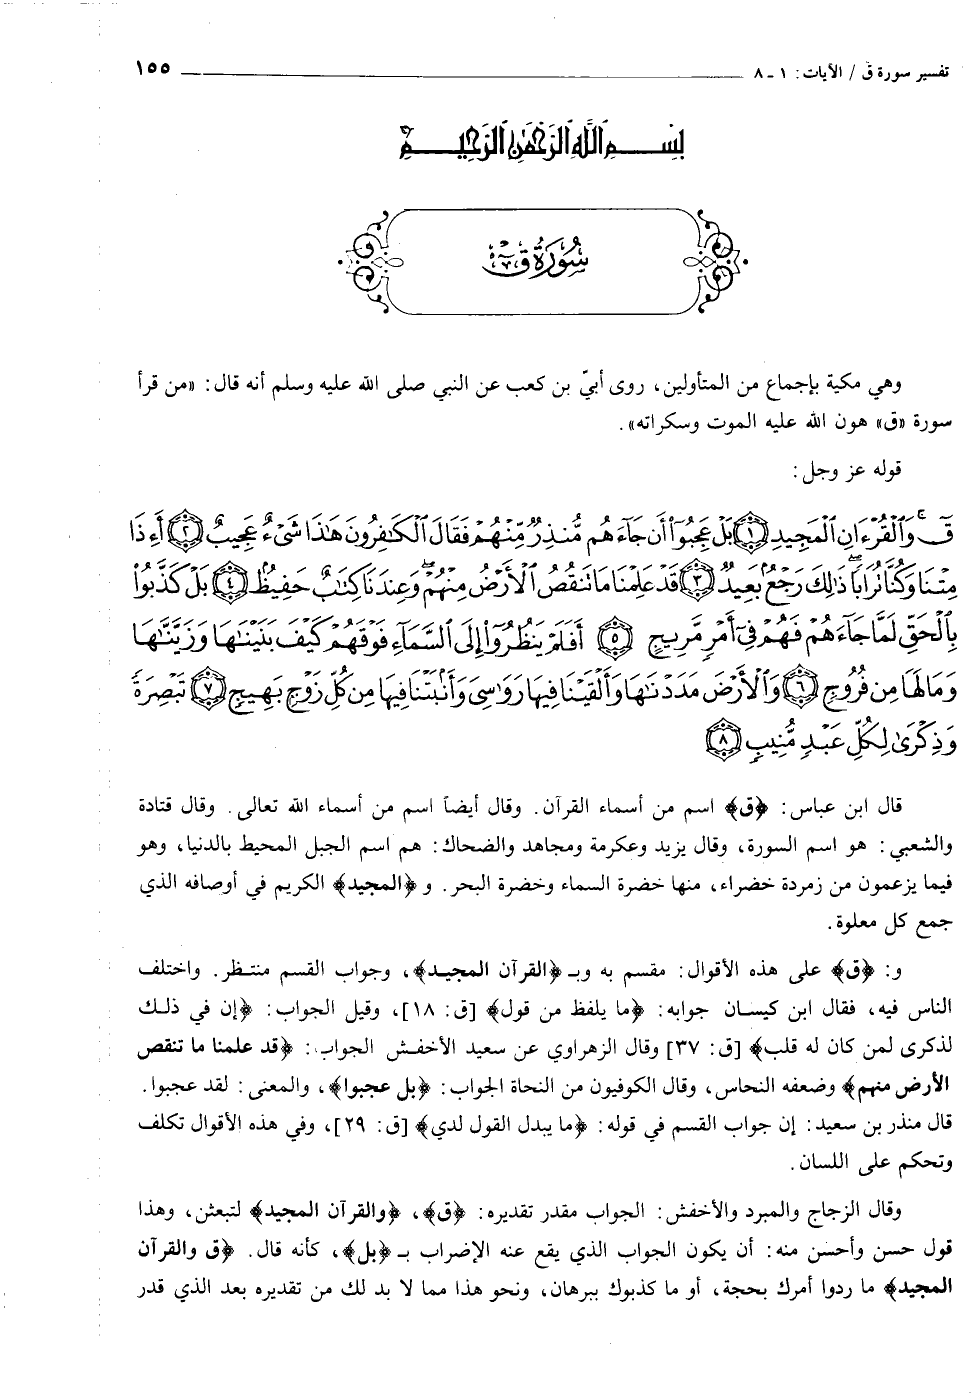 تفسير سورة ق / الآيات : ١ ـ ٨ ١٥٥
بسم الله الرحمن الرحيم
سورة ق
وهي مكية بإجماع من المتأولين، روى أبيّ بن كعب عن النبي صلى الله عليه وسلم أنه قال: «من قرأ
سورة «ق» هون الله عليه الموت وسكراته».
قوله عز وجل:
قٓ ۚ وَٱلْقُرْءَانِ ٱلْمَجِيدِ ﴿١﴾ بَلْ عَجِبُوٓا۟ أَن جَآءَهُم مُّنذِرٌ مِّنْهُمْ فَقَالَ ٱلْكَٰفِرُونَ هَٰذَا شَىْءٌ عَجِيبٌ ﴿٢﴾ أَءِذَا
مِتْنَا وَكُنَّا تُرَابًا ۖ ذَٰلِكَ رَجْعٌۢ بَعِيدٌ ﴿٣﴾ قَدْ عَلِمْنَا مَا تَنقُصُ ٱلْأَرْضُ مِنْهُمْ ۖ وَعِندَنَا كِتَٰبٌ حَفِيظٌۢ ﴿٤﴾ بَلْ كَذَّبُوا۟
بِٱلْحَقِّ لَمَّا جَآءَهُمْ فَهُمْ فِىٓ أَمْرٍ مَّرِيجٍ ﴿٥﴾ أَفَلَمْ يَنظُرُوٓا۟ إِلَى ٱلسَّمَآءِ فَوْقَهُمْ كَيْفَ بَنَيْنَٰهَا وَزَيَّنَّٰهَا
وَمَا لَهَا مِن فُرُوجٍ ﴿٦﴾ وَٱلْأَرْضَ مَدَدْنَٰهَا وَأَلْقَيْنَا فِيهَا رَوَٰسِىَ وَأَنۢبَتْنَا فِيهَا مِن كُلِّ زَوْجٍۭ بَهِيجٍ ﴿٧﴾ تَبْصِرَةً
وَذِكْرَىٰ لِكُلِّ عَبْدٍ مُّنِيبٍ ﴿٨﴾
قال ابن عباس: ﴿ق﴾ اسم من أسماء القرآن. وقال أيضاً اسم من أسماء الله تعالى. وقال قتادة
والشعبي: هو اسم السورة، وقال يزيد وعكرمة ومجاهد والضحاك: هم اسم الجبل المحيط بالدنيا، وهو
فيما يزعمون من زمردة خضراء، منها خضرة السماء وخضرة البحر. و ﴿المجيد﴾ الكريم في أوصافه الذي
جمع كل معلوة.
و: ﴿ق﴾ على هذه الأقوال: مقسم به وبـ ﴿القرآن المجيد﴾، وجواب القسم منتظر. واختلف
الناس فيه، فقال ابن كيسان جوابه: ﴿ما يلفظ من قول﴾ [ق: ١٨]، وقيل الجواب: ﴿إن في ذلك
لذكرى لمن كان له قلب﴾ [ق: ٣٧] وقال الزهراوي عن سعيد الأخفش الجواب: ﴿قد علمنا ما تنقص
الأرض منهم﴾ وضعفه النحاس، وقال الكوفيون من النحاة الجواب: ﴿بل عجبوا﴾، والمعنى: لقد عجبوا.
قال منذر بن سعيد: إن جواب القسم في قوله: ﴿ما يبدل القول لدي﴾ [ق: ٢٩]، وفي هذه الأقوال تكلف
وتحكم على اللسان.
وقال الزجاج والمبرد والأخفش: الجواب مقدر تقديره: ﴿ق﴾، ﴿والقرآن المجيد﴾ لتبعثن، وهذا
قول حسن وأحسن منه: أن يكون الجواب الذي يقع عنه الإضراب بـ ﴿بل﴾، كأنه قال. ﴿ق والقرآن
المجيد﴾ ما ردوا أمرك بحجة، أو ما كذبوك ببرهان، ونحو هذا مما لا بد لك من تقديره بعد الذي قدر